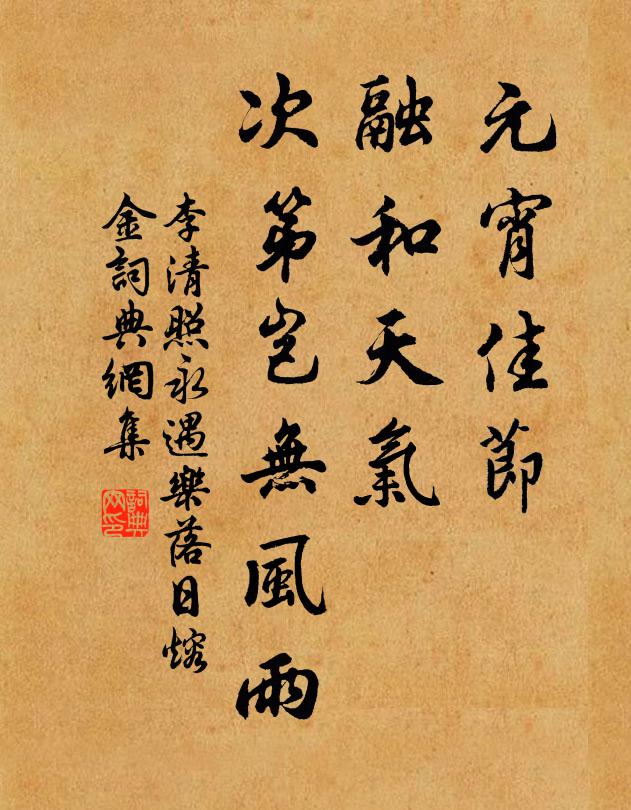 元宵佳節
融和天氣
次第豈無風雨
李清照永遇樂落日熔
金詞典網集
詞典網印